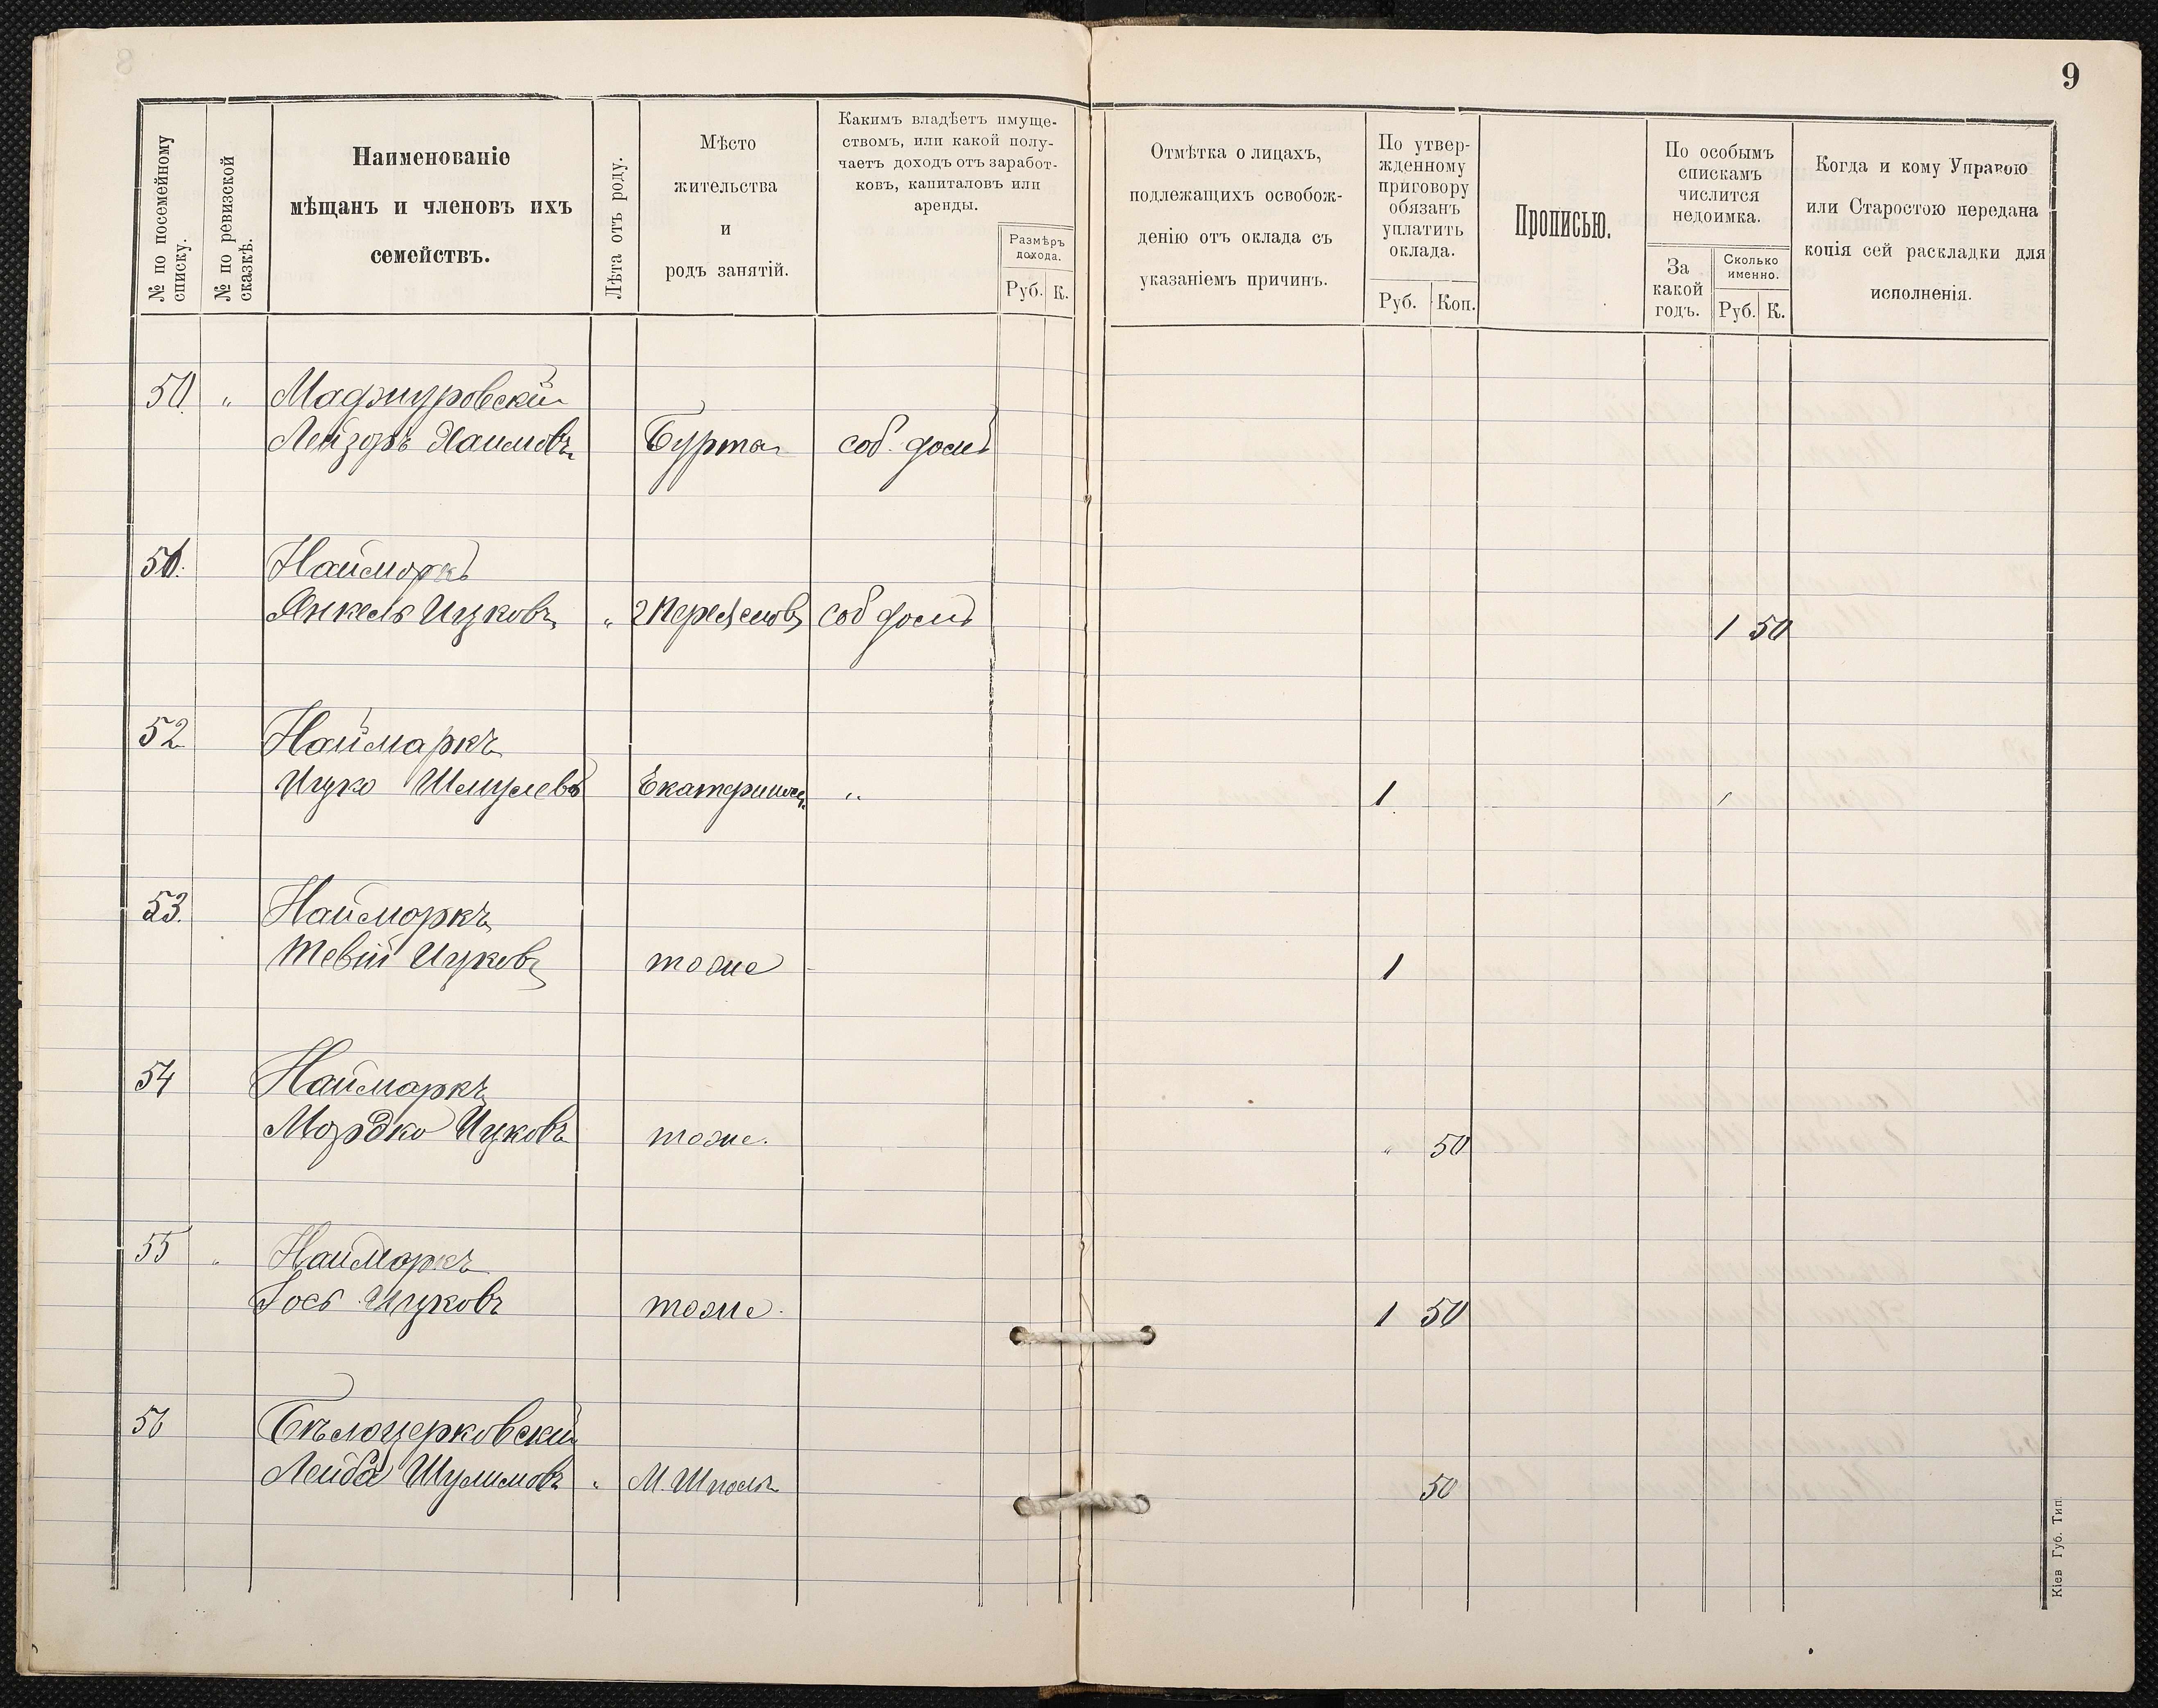 9
№ по посемейному
списку.
№ по ревизской
сказкѣ.
Наименованіе
мѣщанъ и членовъ ихъ
семействъ.
Лѣта отъ роду.
Мѣсто
жительства
и
родъ занятій.
Какимъ владѣетъ имуще-
ствомъ, или какой полу-
чаетъ доходъ отъ заработ-
ковъ, капиталовъ или
аренды.
Размѣръ
дохода.
Руб. К.
Отмѣтка о лицахъ,
подлежащихъ освобож-
денію отъ оклада съ
указаніемъ причинъ.
По утвер-
жденному
приговору
обязанъ
уплатить
оклада.
Руб. Коп.
Прописью.
По особымъ
спискамъ
числится
недоимка.
За
какой
годъ.
Сколько
именно.
Руб. К.
Когда и кому Управою
или Старостою передана
копія сей раскладки для
исполненія.
50 „ Маджуровскій
Лейзоръ Хаимовъ Бурта соб. домъ
51. Наймаркъ
Янкель Ицковъ „ соб домъ 1 50
52 Наймаркъ
Ицко Шмулевъ Екатериносл. „ 1
53. Наймаркъ
Тевій Ицковъ тоже 1
54 Наймаркъ
Мордко Ицковъ тоже. „ 50
55 „ Наймаркъ
Іось Ицковъ тоже. 1 50
56 Бѣлоцерковскій
Лейба Шулимовъ „ М. Шпола 50
Кіев Губ. Тип.